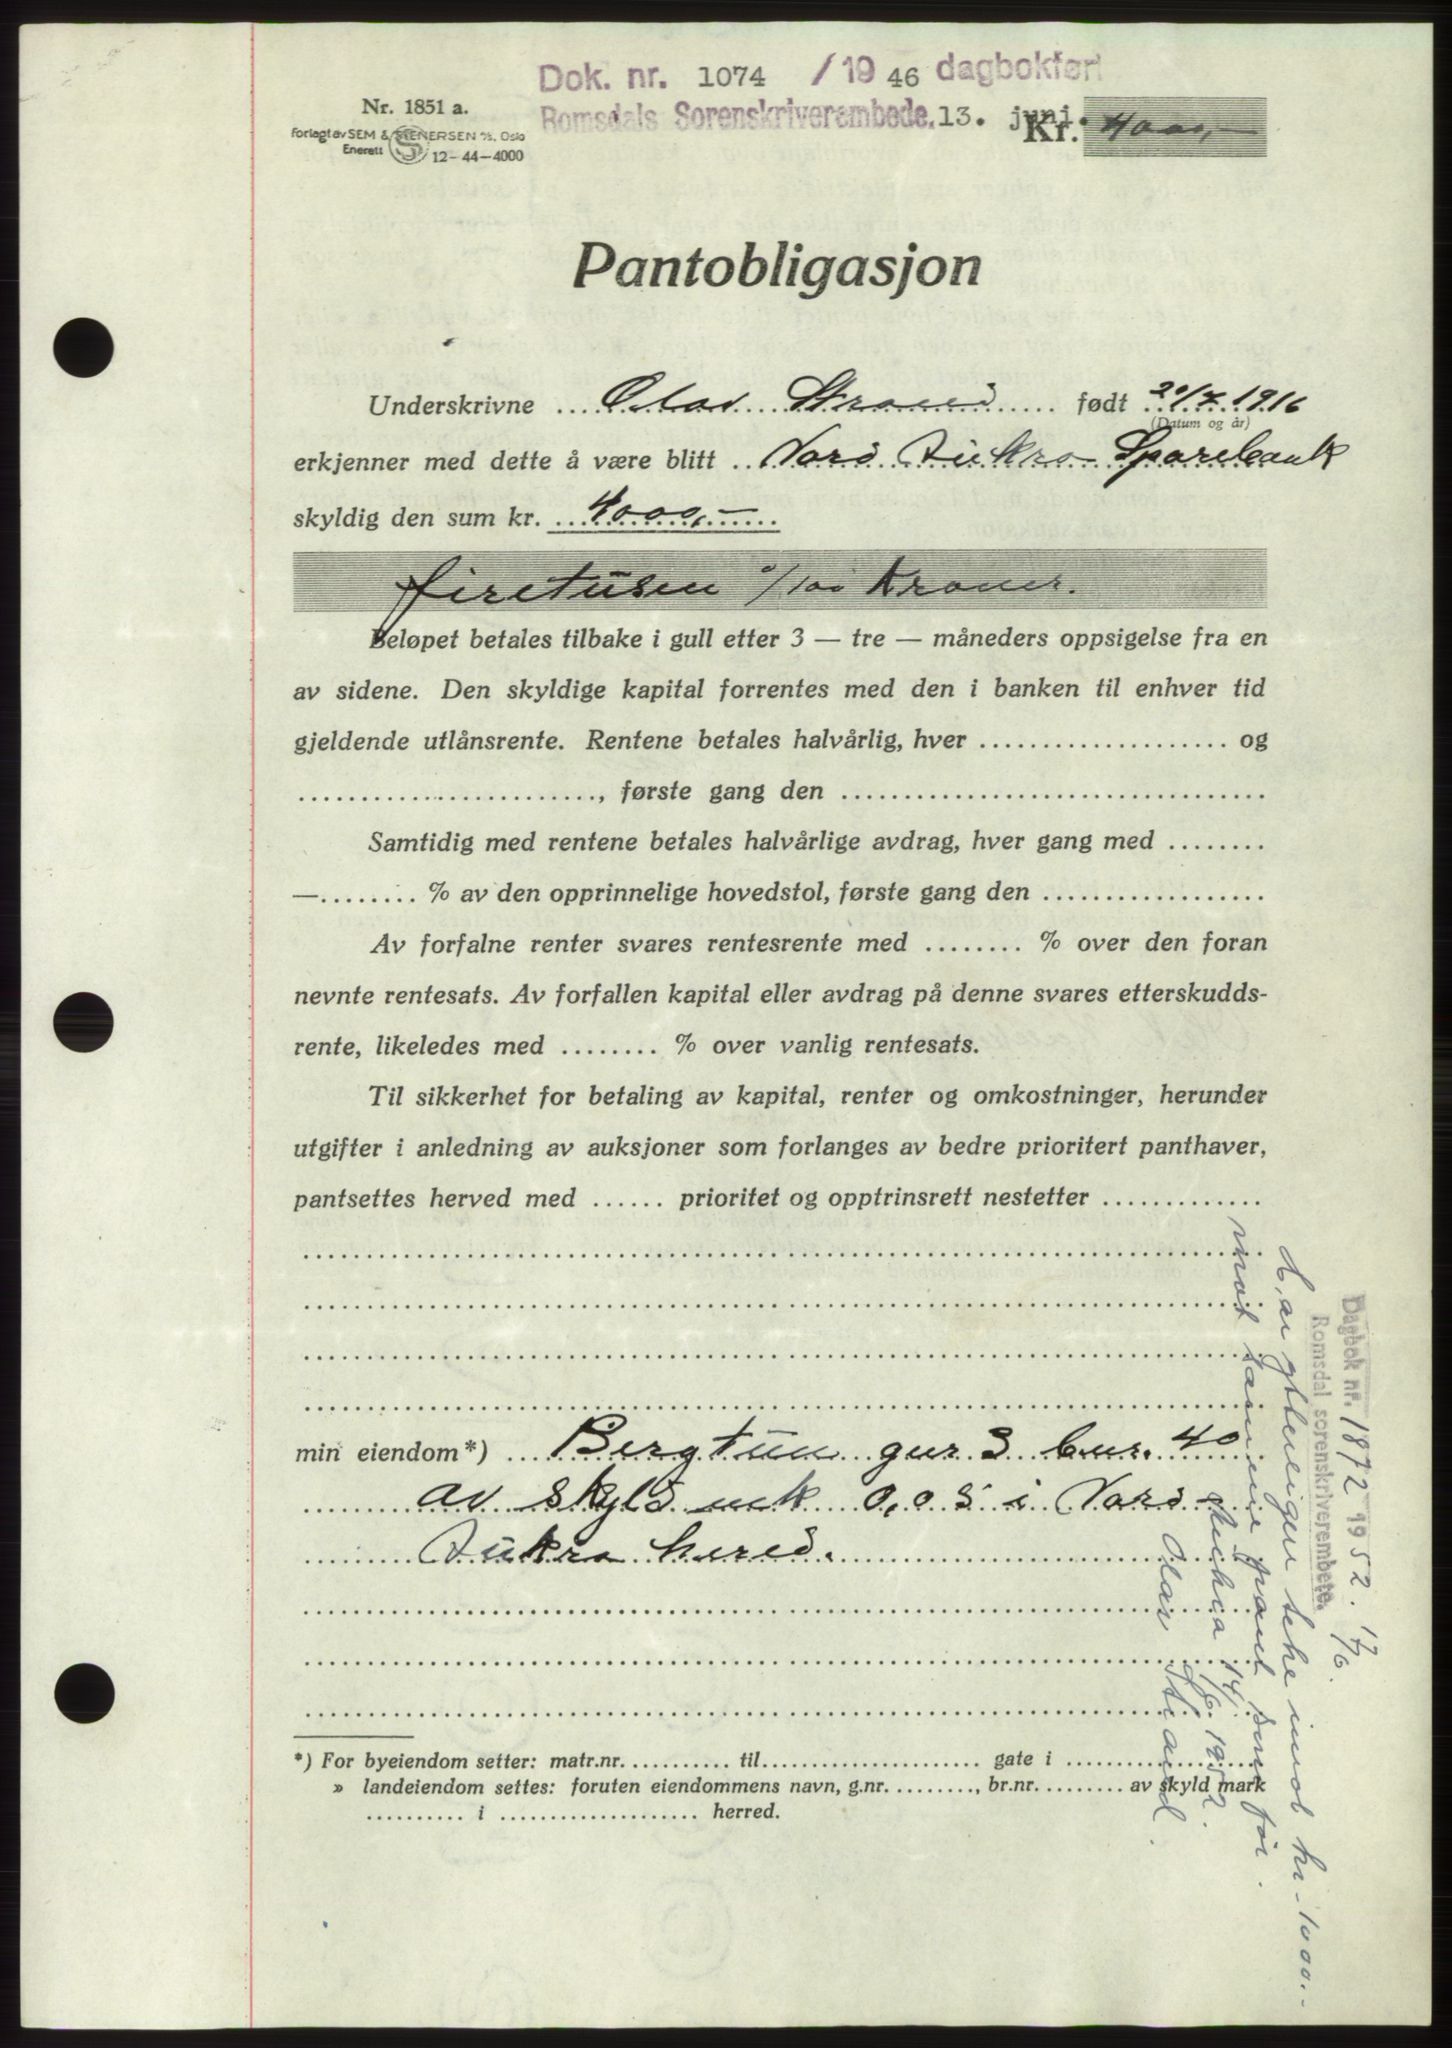 Dok. nr. 1074 / 19 46 dagbokført
Romsdals Sorenskriverembede. 13. juni.
Nr. 1851 a.
Forlagt av SEM & STENERSEN A/S. Oslo
Enerett S 12-44-4000
Kr. 4000,-
Pantobligasjon
Underskrivne Olav Strand født 20/7 1916
(Datum og år)
erkjenner med dette å være blitt Nord Aukra Sparebank
skyldig den sum kr. 4000,-
firetusen 0/100 Kroner.
Beløpet betales tilbake i gull etter 3 — tre — måneders oppsigelse fra en
av sidene. Den skyldige kapital forrentes med den i banken til enhver tid
gjeldende utlånsrente. Rentene betales halvårlig, hver .................... og
........................, første gang den ..................................
Samtidig med rentene betales halvårlige avdrag, hver gang med ........
—........ % av den opprinnelige hovedstol, første gang den ..................
Av forfalne renter svares rentesrente med ........ % over den foran
nevnte rentesats. Av forfallen kapital eller avdrag på denne svares etterskudds-
rente, likeledes med ........ % over vanlig rentesats.
Til sikkerhet for betaling av kapital, renter og omkostninger, herunder
utgifter i anledning av auksjoner som forlanges av bedre prioritert panthaver,
pantsettes herved med ...... prioritet og opptrinsrett nestetter .............
min eiendom*) Bergtun gnr. 3 bnr. 40
av skyld mk 0,05 i Nord
Aukra herred.
*) For byeiendom setter: matr.nr. ........... til...................... gate i ....................
» landeiendom settes: foruten eiendommens navn, g.nr. ........., br.nr. ......... av skyld mark
.......... i .................... herred.
Dagbok nr. 1872 1952. 17/6.
Romsdal sorenskriverembete.
ytterligere imot kr. 1000.-
mot samme pant som før.
Aukra 14/6. 1952.
Olav Strand.